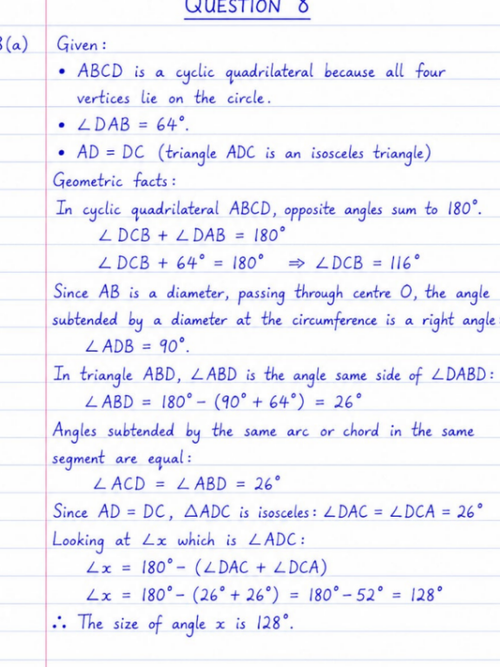 QUESTION 8
(a) Given:
• ABCD is a cyclic quadrilateral because all four
vertices lie on the circle.
• ∠DAB = 64°.
• AD = DC (triangle ADC is an isosceles triangle)
Geometric facts:
In cyclic quadrilateral ABCD, opposite angles sum to 180°.
∠ DCB + ∠DAB = 180°
∠ DCB + 64° = 180° ⇒ ∠DCB = 116°
Since AB is a diameter, passing through centre O, the angle
subtended by a diameter at the circumference is a right angle:
∠ADB = 90°.
In triangle ABD, ∠ABD is the angle same side of ∠DABD:
∠ABD = 180° - (90° + 64°) = 26°
Angles subtended by the same arc or chord in the same
segment are equal:
∠ACD = ∠ABD = 26°
Since AD = DC, △ADC is isosceles: ∠DAC = ∠DCA = 26°
Looking at ∠x which is ∠ADC:
∠x = 180° - (∠DAC + ∠DCA)
∠x = 180° - (26° + 26°) = 180° - 52° = 128°
∴ The size of angle x is 128°.